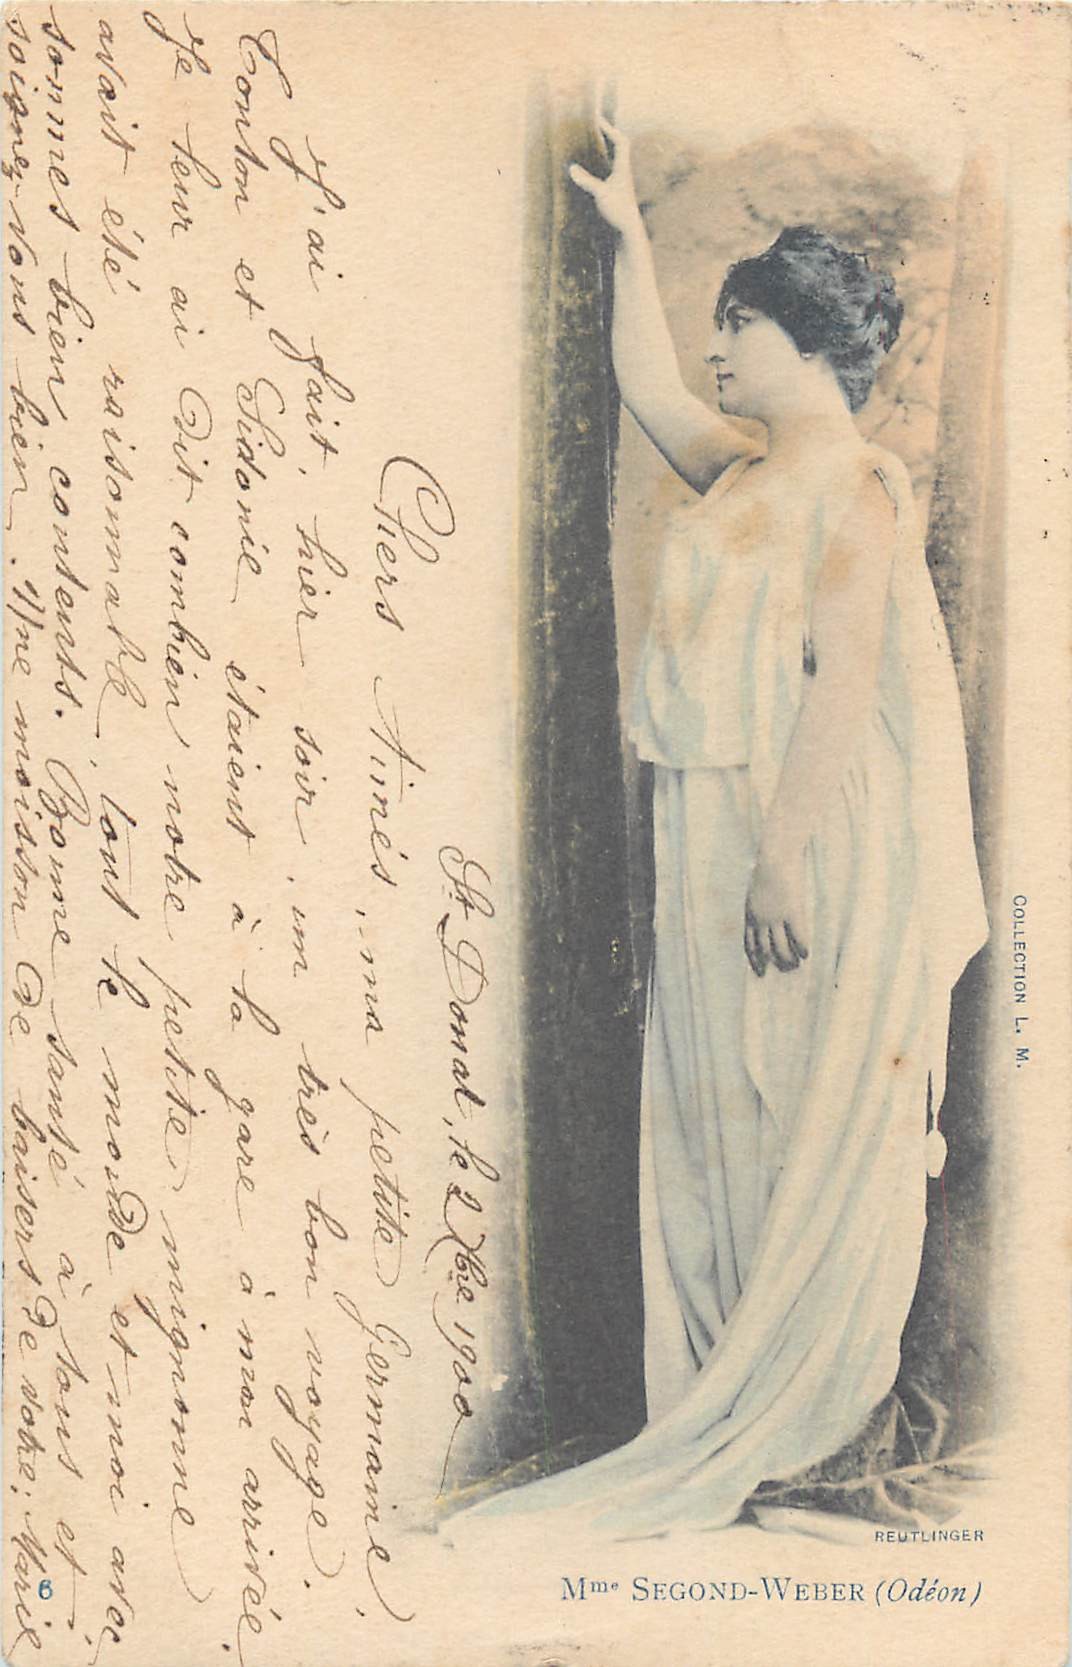 St Donat, le 2 Xbre 1900
Chers Aimés, ma petite Germaine,
J'ai fait, hier soir, um très bon voyage.
Tonton et Sidonie étaient à la gare à mon arrivée.
Je leur ai dit combien notre petite mignonne
avait été raisonnable, tout le monde et moi avec
sommes bien contents. Bonne santé à tous et
soignez-vous bien. Une moisson de baisers de votre: Marie
COLLECTION L. M.
REUTLINGER
Mme SEGOND-WEBER (Odéon)
6